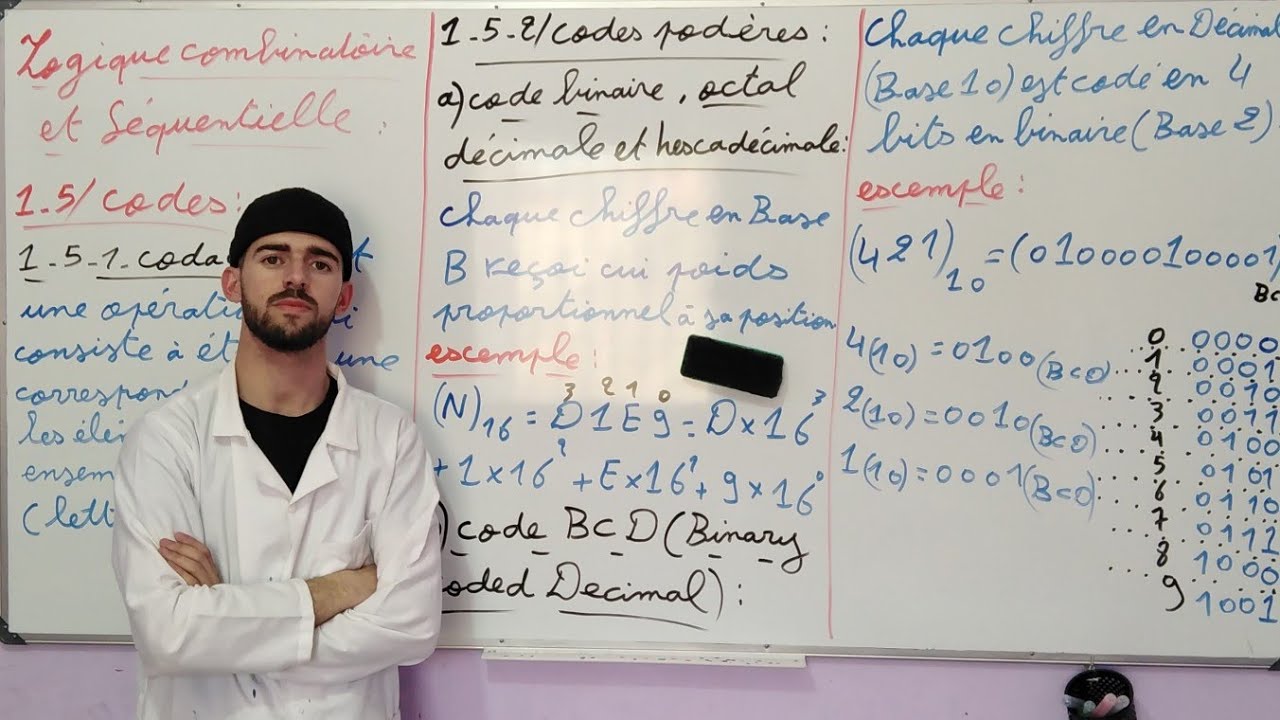 Logique combinatoire
et Séquentielle :
1.5/ codes :
1-5-1-coda
une opérati
consiste à ét une
correspon
les élé
ensem
(lett
1-5-2/codes podères :
a) code binaire, octal
décimale et hescadécimale :
chaque chiffre en Base
B reçoi cui poids
proportionnel à sa position
escemple :
3 2 1 0
(N)16 = D1E9 = D×16³
+ 1×16² + E×16¹ + 9×16⁰
) code BCD (Binary
oded Decimal) :
Chaque chiffre en Décimal
(Base 10) est codé en 4
bits en binaire (Base 2)
escemple :
(421)10 = (010000100001)
BC
4(10) = 0100(BCD)
2(10) = 0010(BCD)
1(10) = 0001(BCD)
0 0000
1 0001
2 0010
3 0011
4 0100
5 0101
6 0110
7 0111
8 1000
9 1001